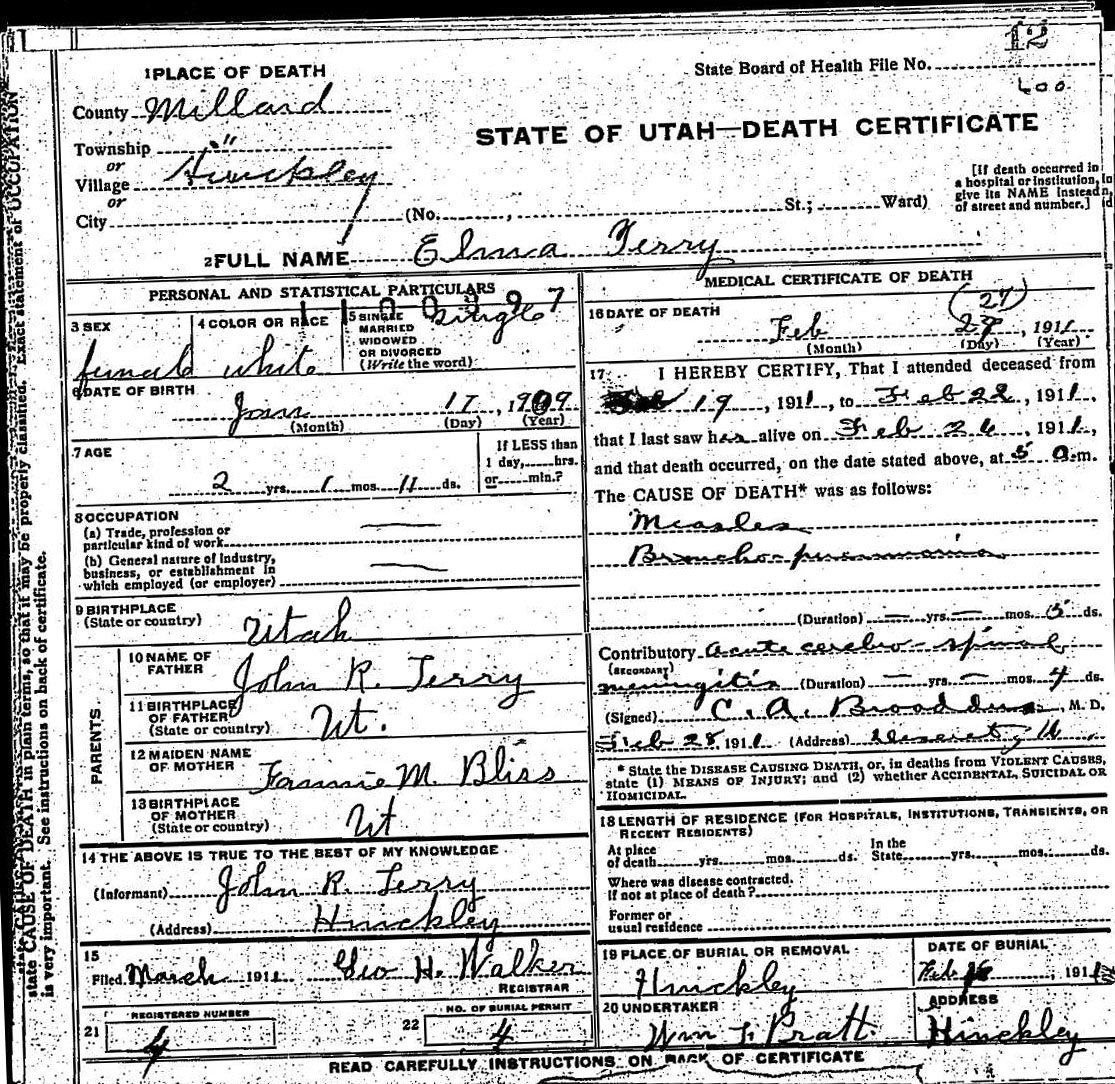 12
1 PLACE OF DEATH
State Board of Health File No.
600
County Millard
STATE OF UTAH—DEATH CERTIFICATE
Township "
or
Village Hinckley
or
City
(No. , St.; Ward)
[If death occurred in
a hospital or institution,
give its NAME instead
of street and number.]
2 FULL NAME Elma Terry
PERSONAL AND STATISTICAL PARTICULARS
3 SEX
female
4 COLOR OR RACE
white
5 SINGLE
MARRIED
WIDOWED
OR DIVORCED
(Write the word)
single
6 DATE OF BIRTH
Jan 17, 1909
(Month) (Day) (Year)
7 AGE
2 yrs. 1 mos. 11 ds.
If LESS than
1 day, hrs.
or min.?
8 OCCUPATION
(a) Trade, profession or
particular kind of work
(b) General nature of industry,
business, or establishment in
which employed (or employer)
9 BIRTHPLACE
(State or country)
Utah
PARENTS.
10 NAME OF
FATHER
John R. Terry
11 BIRTHPLACE
OF FATHER
(State or country)
Ut.
12 MAIDEN NAME
OF MOTHER
Fannie M. Bliss
13 BIRTHPLACE
OF MOTHER
(State or country)
Ut
14 THE ABOVE IS TRUE TO THE BEST OF MY KNOWLEDGE
(Informant) John R. Terry
(Address) Hinckley
15
Filed March 1911 Geo H. Walker
REGISTRAR
REGISTERED NUMBER
21 4
NO. OF BURIAL PERMIT
22 4
MEDICAL CERTIFICATE OF DEATH
16 DATE OF DEATH
(27)
Feb 28, 1911
(Month) (Day) (Year)
17 I HEREBY CERTIFY, That I attended deceased from
Feb 19, 1911, to Feb 22, 1911,
that I last saw her alive on Feb 26, 1911,
and that death occurred, on the date stated above, at 5 a.m.
The CAUSE OF DEATH* was as follows:
Measles
Broncho-pneumonia
(Duration) — yrs. — mos. 5 ds.
Contributory acute cerebro-spinal
(SECONDARY)
meningitis (Duration) — yrs. — mos. 4 ds.
(Signed) C. A. Broaddus, M. D.
Feb 28, 1911 (Address) Deseret, U
* State the DISEASE CAUSING DEATH, or, in deaths from VIOLENT CAUSES,
state (1) MEANS OF INJURY; and (2) whether ACCIDENTAL, SUICIDAL OR
HOMICIDAL.
18 LENGTH OF RESIDENCE (FOR HOSPITALS, INSTITUTIONS, TRANSIENTS, OR
RECENT RESIDENTS)
At place
of death yrs. mos. ds.
In the
State yrs. mos. ds.
Where was disease contracted,
if not at place of death?
Former or
usual residence
19 PLACE OF BURIAL OR REMOVAL
Hinckley
DATE OF BURIAL
Feb , 1911
20 UNDERTAKER
Wm F. Pratt
ADDRESS
Hinckley
READ CAREFULLY INSTRUCTIONS ON BACK OF CERTIFICATE
state CAUSE OF DEATH in plain terms, so that it may be properly classified. Exact statement of OCCUPATION
is very important. See instructions on back of certificate.